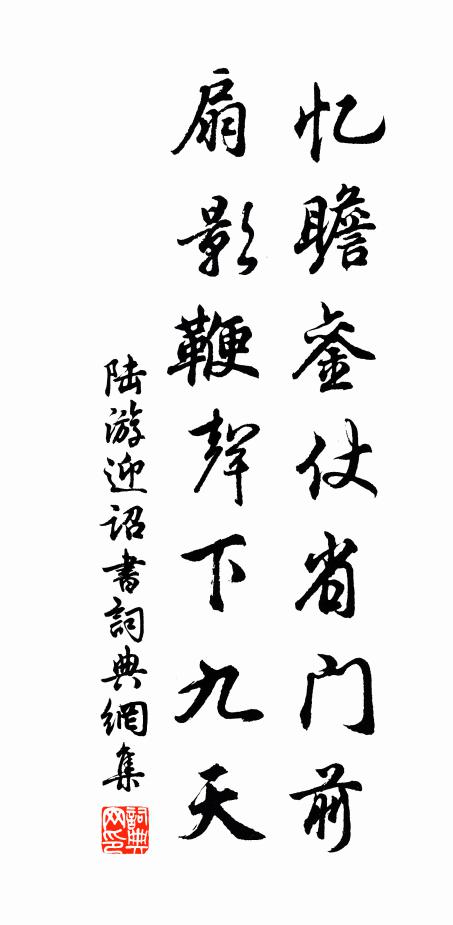 忆瞻銮仗省门前
扇影鞭声下九天
陆游迎诏書詞典網集
詞典网印